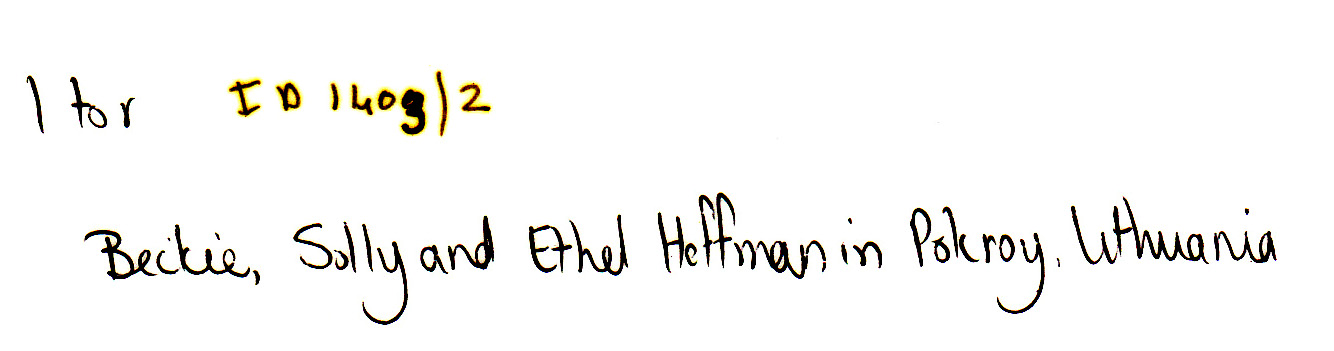 1 tor ID 1409/2
Beckie, Solly and Ethel Hoffman in Pokroy, Lithuania